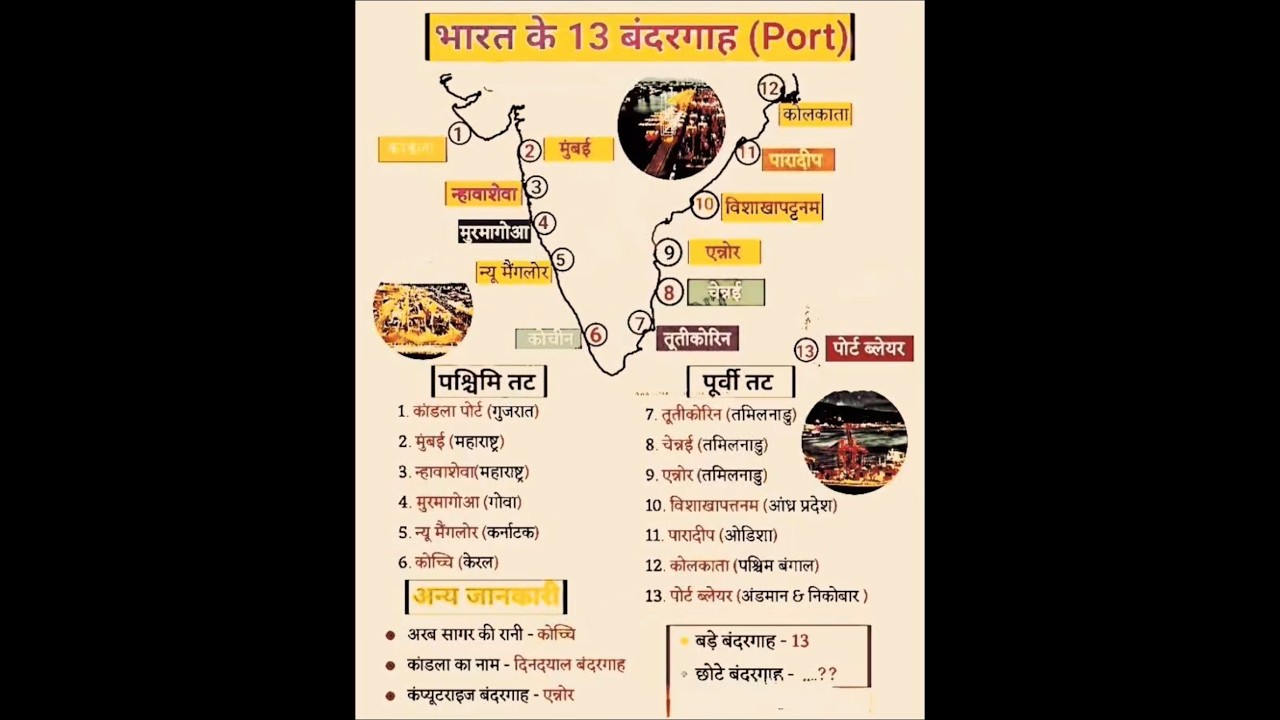 भारत के 13 बंदरगाह (Port)
12
कोलकाता
1
2 मुंबई
11 पारादीप
न्हावाशेवा 3
10 विशाखापट्टनम
मुरमागोआ 4
9 एन्नोर
न्यू मैंगलोर 5
8 चेन्नई
कोचीन 6
7 तूतीकोरिन
13 पोर्ट ब्लेयर
पश्चिमि तट
1. कांडला पोर्ट (गुजरात)
2. मुंबई (महाराष्ट्र)
3. न्हावाशेवा(महाराष्ट्र)
4. मुरमागोआ (गोवा)
5. न्यू मैंगलोर (कर्नाटक)
6. कोच्चि (केरल)
पूर्वी तट
7. तूतीकोरिन (तमिलनाडु)
8. चेन्नई (तमिलनाडु)
9. एन्नोर (तमिलनाडु)
10. विशाखापत्तनम (आंध्र प्रदेश)
11. पारादीप (ओडिशा)
12. कोलकाता (पश्चिम बंगाल)
13. पोर्ट ब्लेयर (अंडमान & निकोबार )
अन्य जानकारी
अरब सागर की रानी - कोच्चि
कांडला का नाम - दिनदयाल बंदरगाह
कंप्यूटराइज बंदरगाह - एन्नोर
बड़े बंदरगाह - 13
छोटे बंदरगाह - ....??